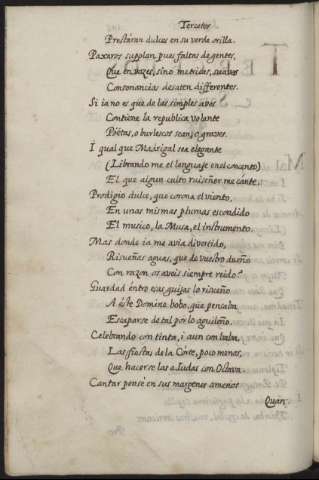 Tercetos
Prestaran dulces en su verde orilla.
Paxaros suplan pues faltas de gentes,
Que en vozes, sino metidas, suaves
Consonancias desaten differentes.
Si ia no es que de las simples aves
Contiene la republica volante
Poëtas, o burlescos sean, o graves.
I qual que Madrigal sea elegante
(Librando me el lenguaje en el concento)
El que algun culto ruiseñor me cante;
Prodigio dulce, que corona el viento,
En unas mismas plumas escondido
El musico, la Musa, el instrumento.
Mas donde ia me avia divertido,
Risueñas aguas, que de vuestro dueño
Con razon, os aveis siempre reido?
Guardad entre essas guijas lo risueño
A este Domino bobo, que pensaba
Escaparse de tal por lo aguileño.
Celebrando con tinta, i aun con baba
Las fiestas de la Corte, poco menos,
Que hacerse las a Iudas con Octava.
Cantar pensé en sus margenes amenos
Quan-